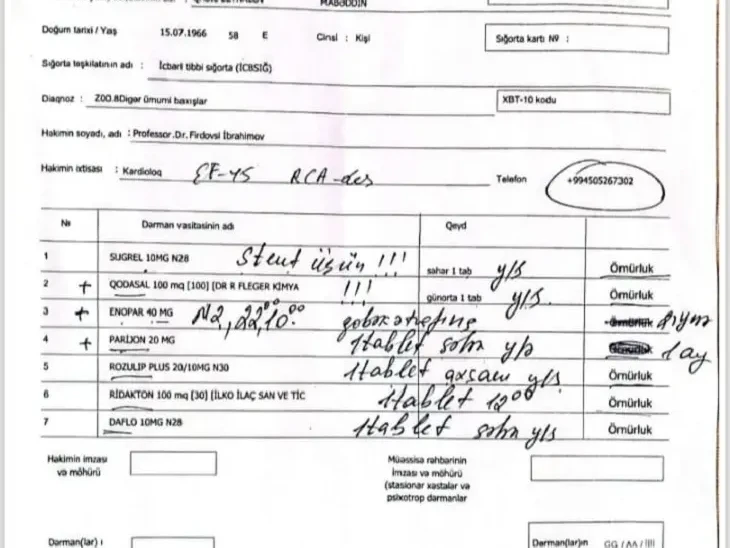 MƏBƏDDİN
Doğum tarixi / Yaş : 15.07.1966 58 E Cinsi : Kişi
Sığorta kartı № :
Sığorta təşkilatının adı : İcbari tibbi sığorta (İCBSIĞ)
Diaqnoz : Z00.8Digər ümumi baxışlar
XBT-10 kodu
Həkimin soyadı, adı : Professor.Dr.Firdovsi İbrahimov
Həkimin ixtisası : Kardioloq EF-45 RCA-des Telefon +994505267302
№ Dərman vasitəsinin adı Qeyd
1 SUGREL 10MG N28 Stent üçün !!! səhər 1 tab y/s Ömürlük
2 + QODASAL 100 mq [100] (DR R FLEGER KİMYA !!! günorta 1 tab y/s. Ömürlük
3 + ENOPAR 40 MG N2, 22, 10⁰⁰ göbək ətrafına Ömürlük
4 + PARİJON 20 MG 1tablet səhər y/ə 1 ay
5 ROZULIP PLUS 20/10MG N30 1tablet axşam y/s Ömürlük
6 RİDAKTON 100 mq [30] (İLKO İLAÇ SAN VE TİC 1tablet 12⁰⁰ Ömürlük
7 DAFLO 10MG N28 1tablet səhər y/s Ömürlük
Həkimin imzası
və möhürü
Müəssisə rəhbərinin
imzası və möhürü
(stasionar xəstələr və
psixotrop dərmanlar
Dərman(lar)ı
Dərman(lar)ın GG / AA / İİİİ